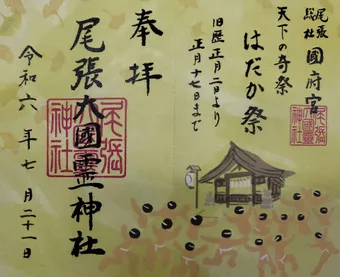 尾張
総社
國府宮
天下の奇祭
はだか祭
旧歴正月二日より
正月十七日まで
奉拝
尾張大國霊神社
令和六年七月二十一日
尾張
大國霊
神社